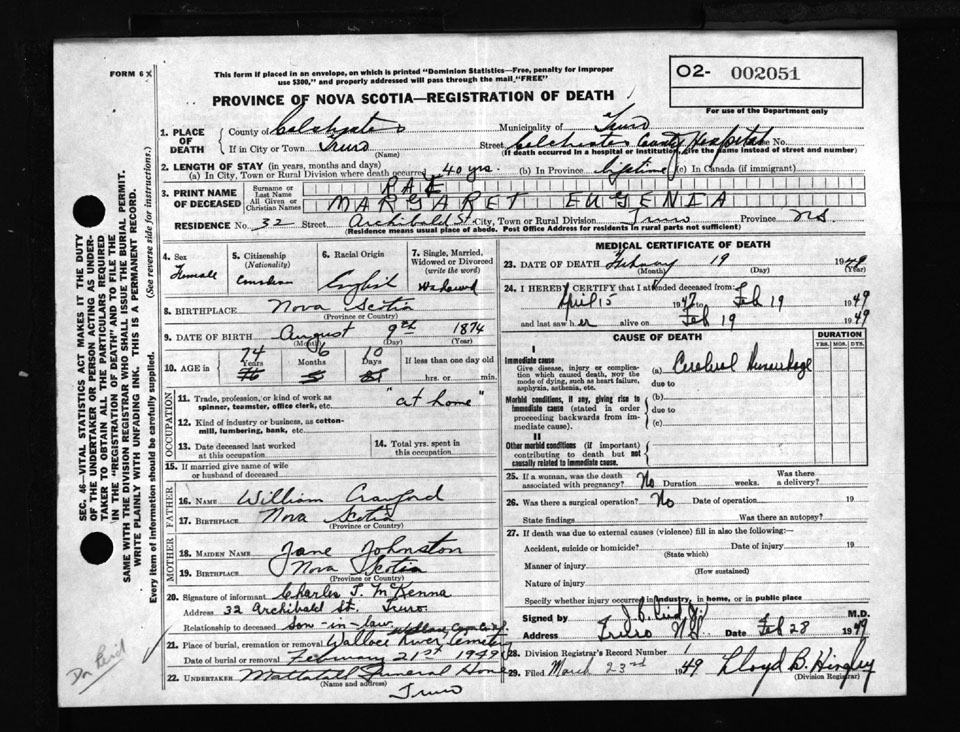 FORM 6 X
This form if placed in an envelope, on which is printed "Dominion Statistics—Free, penalty for improper
use $300," and properly addressed will pass through the mail "FREE"
PROVINCE OF NOVA SCOTIA—REGISTRATION OF DEATH
02- 002051
For use of the Department only
1. PLACE OF DEATH { County of Colchester Municipality of Truro
If in City or Town Truro (Name) Street Colchester County Hospital No.
(If death occurred in a hospital or institution, give the name instead of street and number)
2. LENGTH OF STAY (in years, months and days)
(a) In City, Town or Rural Division where death occurred 40 yrs. (b) In Province lifetime (c) In Canada (if immigrant)
3. PRINT NAME OF DECEASED { Surname or Last Name RAE
All Given or Christian Names MARGARET EUGENIA
RESIDENCE No. 32 Street Archibald St City, Town or Rural Division Truro Province N.S.
(Residence means usual place of abode. Post Office Address for residents in rural parts not sufficient)
4. Sex Female
5. Citizenship (Nationality) Canadian
6. Racial Origin English
7. Single, Married, Widowed or Divorced (write the word) Widowed
8. BIRTHPLACE Nova Scotia
(Province or Country)
9. DATE OF BIRTH August 9th 1874
(Month) (Day) (Year)
10. AGE in { 74 Years 6 Months 10 Days If less than one day old
hrs. or min.
OCCUPATION
11. Trade, profession, or kind of work as spinner, teamster, office clerk, etc. "at home"
12. Kind of industry or business, as cotton-mill, lumbering, bank, etc.
13. Date deceased last worked at this occupation
14. Total yrs. spent in this occupation
15. If married give name of wife or husband of deceased
FATHER
16. NAME William Crawford
17. BIRTHPLACE Nova Scotia
(Province or Country)
MOTHER
18. MAIDEN NAME Jane Johnston
19. BIRTHPLACE Nova Scotia
(Province or Country)
20. Signature of informant Charles T. McKenna
Address 32 Archibald St. Truro
Relationship to deceased son-in-law
21. Place of burial, cremation or removal Wallace River Cemetery
Date of burial or removal February 21st 1949
22. UNDERTAKER Mattatall Funeral Home
(Name and address) Truro
MEDICAL CERTIFICATE OF DEATH
23. DATE OF DEATH February 19 1949
(Month) (Day) (Year)
24. I HEREBY CERTIFY that I attended deceased from
April 15 1947 to Feb 19 1949
and last saw her alive on Feb 19 1949
CAUSE OF DEATH
DURATION
YRS. MOS. DYS.
I
Immediate cause
Give disease, injury or complication which caused death, not the mode of dying, such as heart failure, asphyxia, asthenia, etc.
(a) Cerebral Hemorrhage
due to
Morbid conditions, if any, giving rise to immediate cause (stated in order proceeding backwards from immediate cause).
(b)
due to
(c)
II
Other morbid conditions (if important) contributing to death but not causally related to immediate cause.
25. If a woman, was the death associated with pregnancy? No Duration weeks. Was there a delivery?
26. Was there a surgical operation? No Date of operation 19
State findings Was there an autopsy?
27. If death was due to external causes (violence) fill in also the following:—
Accident, suicide or homicide? Date of injury 19
(State which)
Manner of injury
(How sustained)
Nature of injury
Specify whether injury occurred in industry, in home, or in public place
Signed by M.D.
Address Truro N.S. Date Feb 28 1949
28. Division Registrar's Record Number
29. Filed March 23rd 1949 Lloyd B. Hingley
(Division Registrar)
SEC. 46—VITAL STATISTICS ACT MAKES IT THE DUTY
OF THE UNDERTAKER OR PERSON ACTING AS UNDER-
TAKER TO OBTAIN ALL THE PARTICULARS REQUIRED
IN THE "REGISTRATION OF DEATH" AND TO FILE THE
SAME WITH THE DIVISION REGISTRAR WHO SHALL ISSUE THE BURIAL PERMIT.
WRITE PLAINLY WITH UNFADING INK. THIS IS A PERMANENT RECORD.
Every item of information should be carefully supplied. (See reverse side for instructions.)